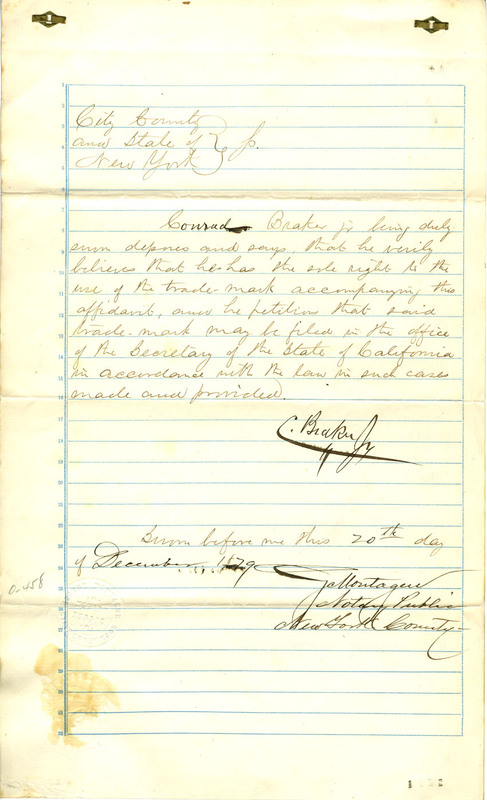 City County
and State of } ss.
New York
Conrad Braker jr being duly
sworn deposes and says, that he verily
believes that he has the sole right to the
use of the trade-mark accompanying this
affidavit, and he petitions that said
trade-mark may be filed in the office
of the Secretary of the State of California
in accordance with the law in such cases
made and provided.
C. Braker Jr
Sworn before me this 20th day
of December 1879
Montague
Notary Public
New York County
0.458